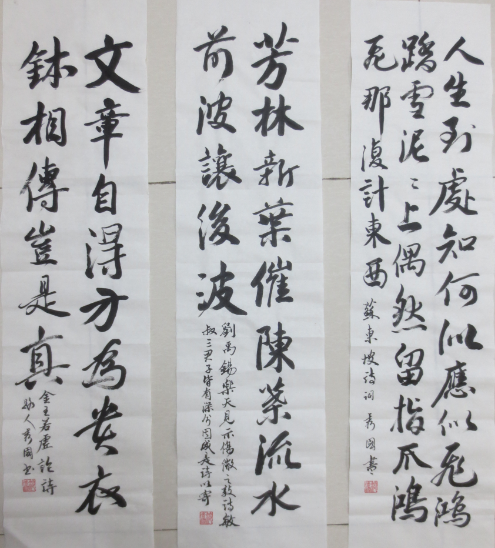 人生到處知何似應似飛鴻
踏雪泥〻上偶然留指爪鴻
飛那復計東西 蘇東坡詩詞 秀國書
芳林新葉催陳葉流水
前波讓後波
劉禹錫樂天見示傷微之敦詩敏
叔三君子皆有深分因感是詩以寄
文章自得方為貴衣
鉢相傳豈是真
金王若虛論詩
人秀國書